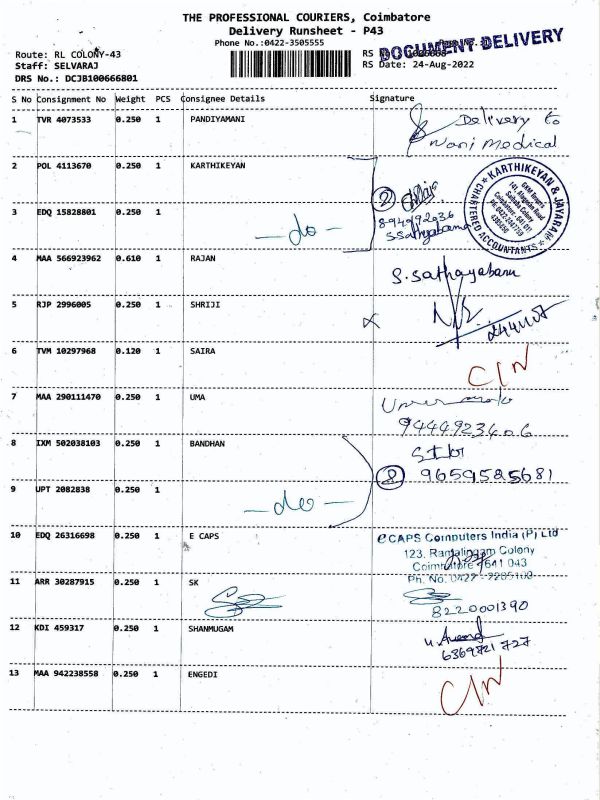 THE PROFESSIONAL COURIERS, Coimbatore
Delivery Runsheet - P43
Phone No.:0422-3505555
DOCUMENT DELIVERY
Route: RL COLONY-43
RS
Staff: SELVARAJ
RS Date: 24-Aug-2022
DRS No.: DCJB100666801
S No Consignment No Weight PCS Consignee Details Signature
1 TVR 4073533 0.250 1 PANDIYAMANI
Delivery to
Nani Medical
2 POL 4113670 0.250 1 KARTHIKEYAN
KARTHIKEYAN & JAYARAM
CHARTERED ACCOUNTANTS
2
3 EDQ 15828801 0.250 1
-do-
4 MAA 566923962 0.610 1 RAJAN
S.sathayabanu
5 RJP 2996005 0.250 1 SHRIJI
6 TVM 10297968 0.120 1 SAIRA
C/N
7 MAA 290111470 0.250 1 UMA
9444923406
8 IXM 502038103 0.250 1 BANDHAN
2 9659585681
9 UPT 2082838 0.250 1
-do-
10 EDQ 26316698 0.250 1 E CAPS
eCAPS Computers India (P) Ltd
123, Ramalingam Colony
Coimbatore 641 043
Ph. No. 0422 -
11 ARR 30287915 0.250 1 SK
8220001390
12 KDI 459317 0.250 1 SHANMUGAM
6369721727
13 MAA 942238558 0.250 1 ENGEDI
C/N